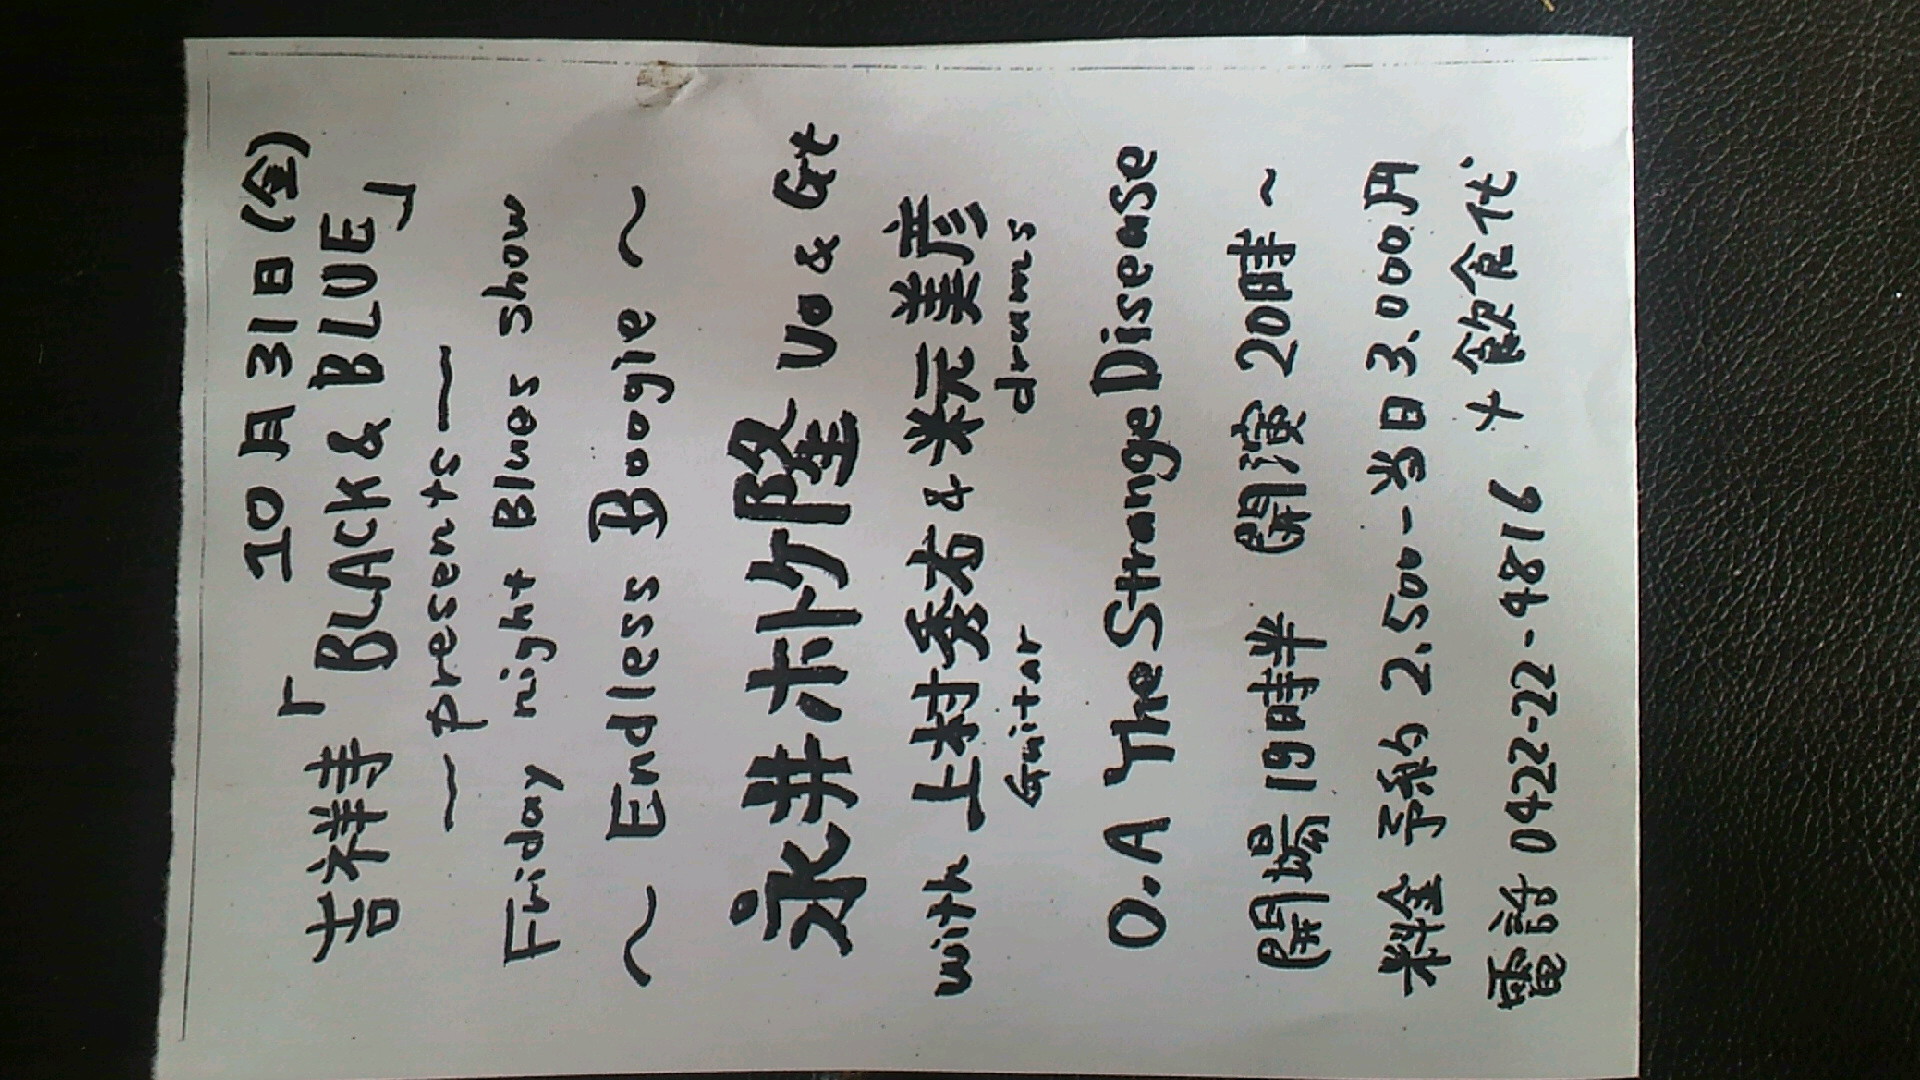 10月31日(金)
吉祥寺「BLACK & BLUE」
—presents—
Friday night Blues show
～ Endless Boogie ～
永井ホトケ隆 Vo & Gt
with 上村秀右 & 米元美彦
Guitar drums
O.A The Strange Disease
開場19時半 開演20時~
料金 予約2.500-当日3.000円
電話0422-22-4816 +飲食代